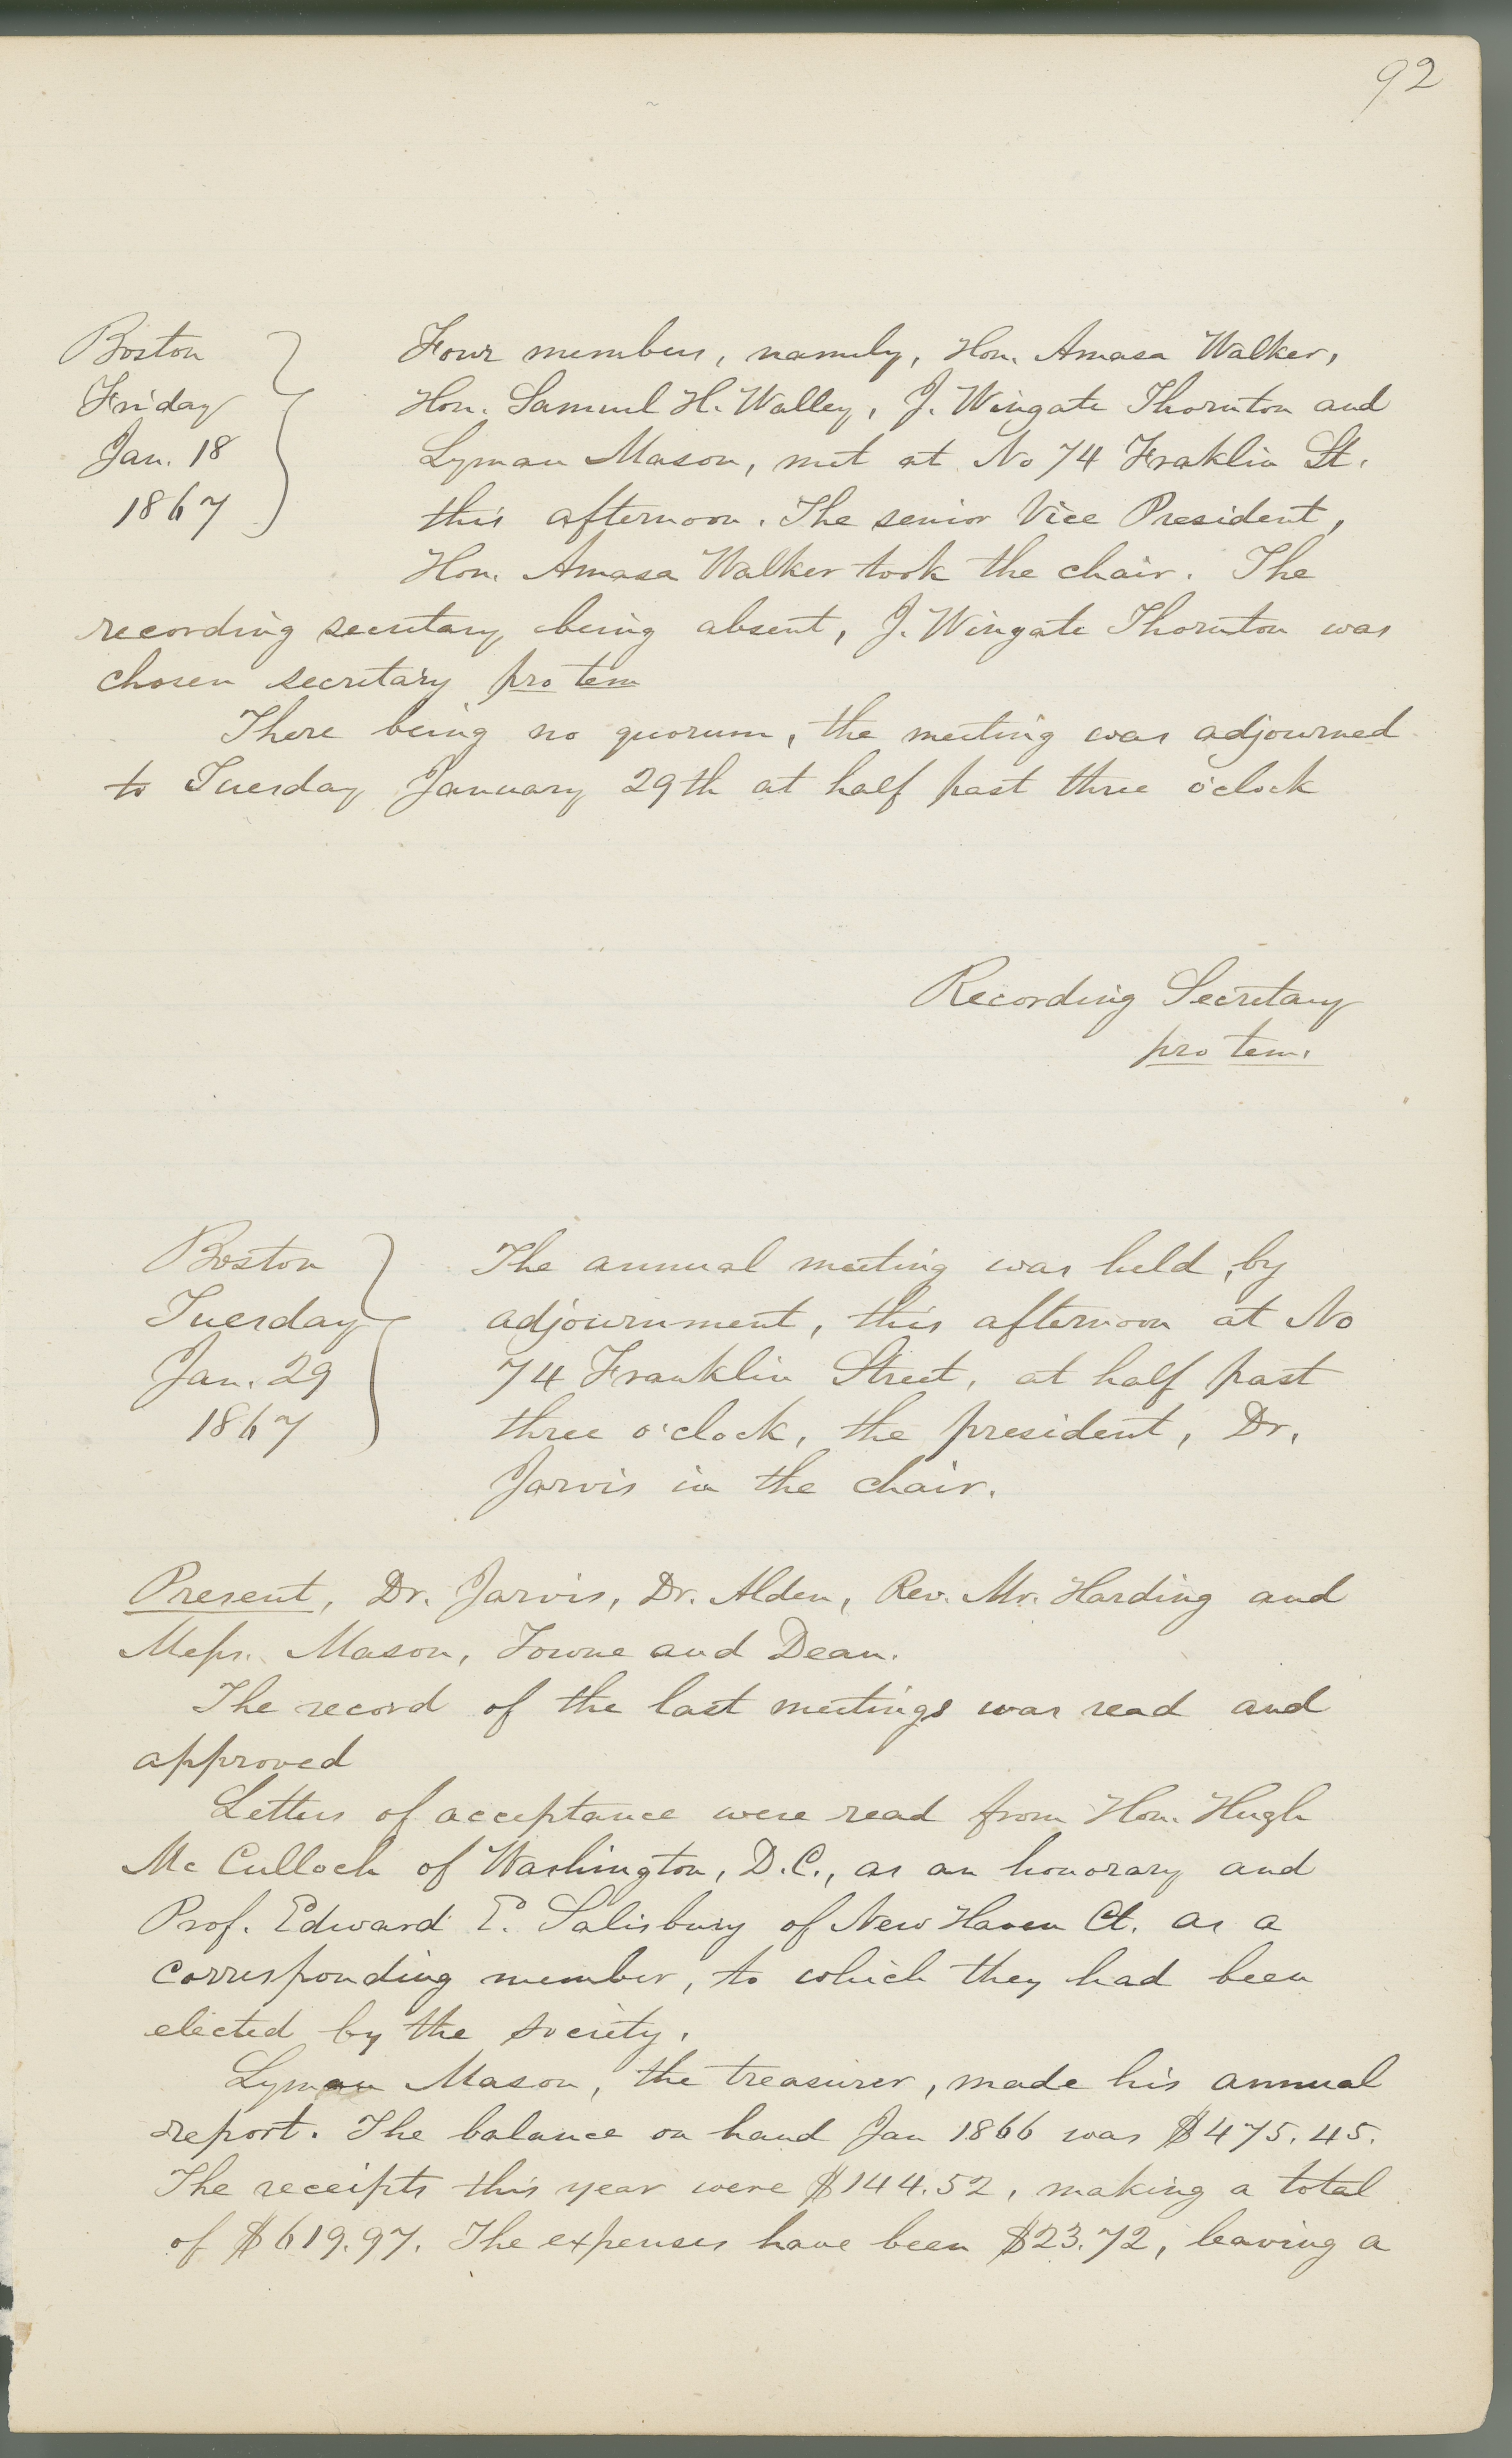 92
Boston
Friday
Jan. 18
1867
Four members, namely, Hon. Amasa Walker,
Hon. Samuel H. Walley, J. Wingate Thornton and
Lyman Mason, met at No 74 Fraklin St.
this afternoon. The senior Vice President,
Hon. Amasa Walker took the chair. The
recording secretary being absent, J. Wingate Thornton was
chosen secretary pro tem
There being no quorum, the meeting was adjourned
to Tuesday January 29th at half past three o'clock
Recording Secretary
pro tem.
Boston
Tuesday
Jan. 29
1867
The annual meeting was held, by
adjournment, this afternoon at No
74 Franklin Street, at half past
three o'clock, the president, Dr.
Jarvis in the chair.
Present, Dr. Jarvis, Dr. Alden, Rev. Mr. Harding and
Messrs. Mason, Towne and Dean.
The record of the last meetings was read and
approved
Letters of acceptance were read from Hon. Hugh
McCulloch of Washington, D.C., as an honorary and
Prof. Edward E. Salisbury of New Haven Ct. as a
corresponding member, to which they had been
elected by the society.
Lyman Mason, the treasurer, made his annual
report. The balance on hand Jan 1866 was $475.45.
The receipts this year were $144.52, making a total
of $619.97. The expenses have been $23.72, leaving a